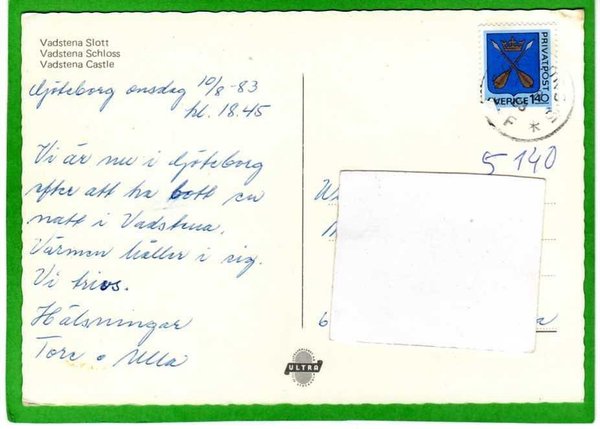 Vadstena Slott
Vadstena Schloss
Vadstena Castle
Göteborg onsdag 10/8-83
kl. 18.45
Vi är nu i Göteborg
efter att ha bott en
natt i Vadstena.
Värmen håller i sig.
Vi trivs.
Hälsningar
Tore o Ulla
PRIVATPOST
SVERIGE 140
5 140
6
ULTRA